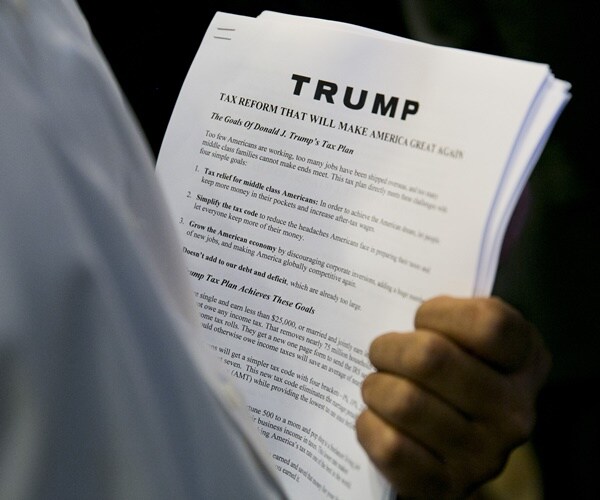 TRUMP
TAX REFORM THAT WILL MAKE AMERICA GREAT AGAIN
The Goals Of Donald J. Trump's Tax Plan
Too few Americans are working, too many jobs have been shipped overseas, and too many
middle class families cannot make ends meet. This tax plan directly meets these challenges with
four simple goals:
1. Tax relief for middle class Americans: In order to achieve the American dream, let people
keep more money in their pockets and increase after-tax wages.
2. Simplify the tax code to reduce the headaches Americans face in preparing their taxes and
let everyone keep more of their money.
3. Grow the American economy by discouraging corporate inversions, adding a huge number
of new jobs, and making America globally competitive again.
Doesn't add to our debt and deficit, which are already too large.
ump Tax Plan Achieves These Goals
single and earn less than $25,000, or married and jointly earn
ot owe any income tax. That removes nearly 75 million households
ome tax rolls. They get a new one page form to send the IRS
uld otherwise owe income taxes will save an average of
ns will get a simpler tax code with four brackets
seven. This new tax code eliminates the
(AMT) while providing the lowest
one 500 to a mom and pop
business income in
ing America's tax
earned and
earned it.